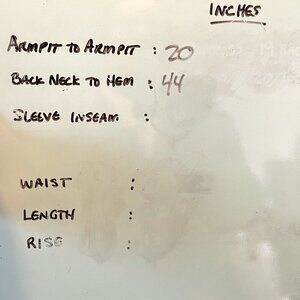 INCHES
ARMPIT TO ARMPIT : 20
BACK NECK TO HEM : 44
SLEEVE INSEAM :
WAIST :
LENGTH :
RISE :